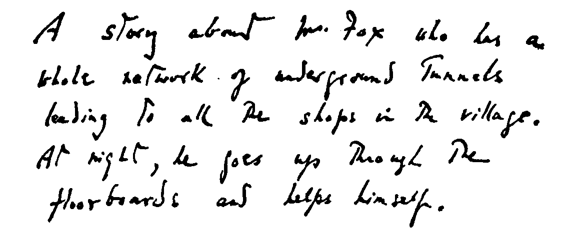 A story about Mr. Fox who has a
whole network of underground Tunnels
leading to all the shops in the village.
At night, he goes up Through The
floorboards and helps himself.